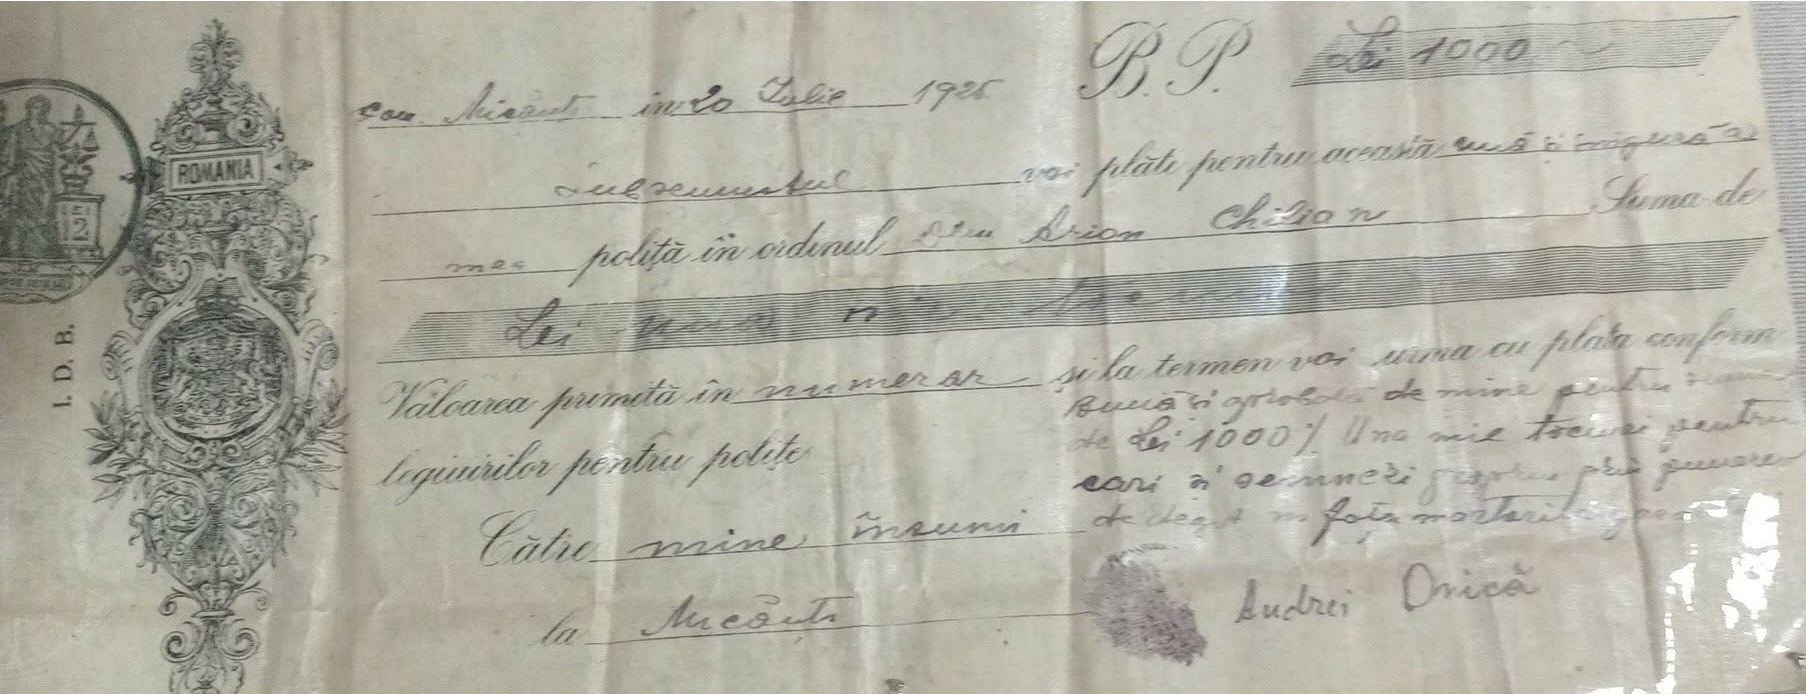 B. P. Lei 1000
com. Micăuți în 20 Iulie 1925
ROMANIA
LEI
2
subsemnatul voi plăti pentru această una și singură a
mea poliță în ordinul Dlui Arion Chilian Suma de
Lei una mie
I. D. B.
Valoarea primită în numerar și la termen voi urma cu plata conform
legiuirilor pentru polițe
Bună și aprobată de mine pentru suma
de Lei 1000 % Una mie pentru
cari și semnez prin punerea
de deget în fața martorilor
Către mine însumi
la Micăuți
Andrei Onică